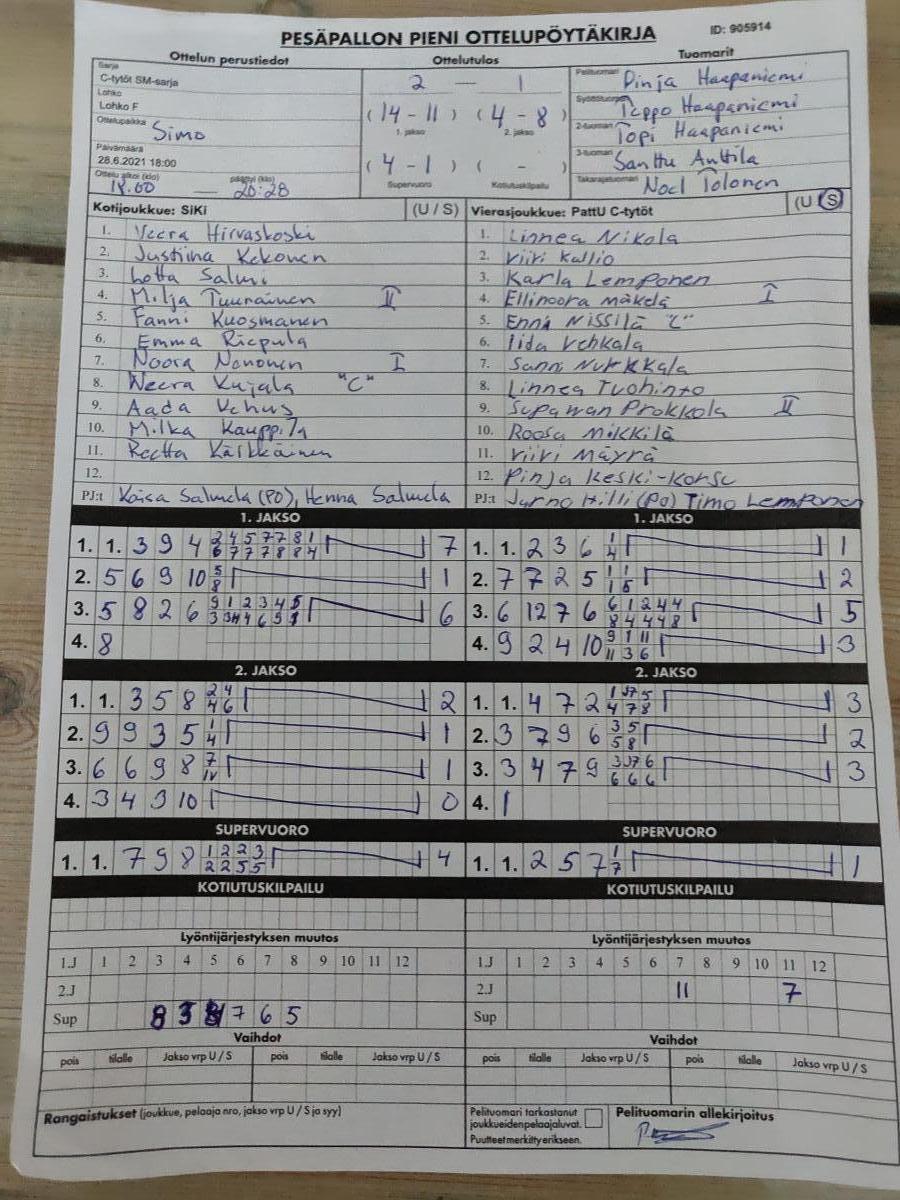 PESÄPALLON PIENI OTTELUPÖYTÄKIRJA ID: 905914
Ottelun perustiedot Ottelutulos Tuomarit
Sarja
C-tytöt SM-sarja 2 — 1 Pelituomari Pinja Haapaniemi
Lohko
Lohko F (14 - 11) (4 - 8) Teppo Haapaniemi
1. jakso 2. jakso
Ottelupaikka Simo 2-tuomari Topi Haapaniemi
Päivämäärä
28.6.2021 18:00 (4 - 1) ( - ) 3-tuomari Santtu Anttila
Supervuoro Kotiutuskilpailu
Ottelu alkoi (klo) 18.00 — päättyi (klo) 20:28 Takarajatuomari Noel Tolonen
Kotijoukkue: SiKi (U / S) Vierasjoukkue: PattU C-tytöt (U S)
1. Veera Hirvaskoski 1. Linnea Nikola
2. Justiina Kekonen 2. Viivi Kallio
3. Lotta Salmi 3. Karla Lemponen
4. Milja Tuurainen II 4. Ellinoora Mäkelä I
5. Fanni Kuosmanen 5. Enni Nissilä "C"
6. Emma Riepula 6. Iida Vehkala
7. Noora Nononen I 7. Sanni Nurkkala
8. Neera Kujala "C" 8. Linnea Tuohinto
9. Aada Vehus 9. Supawan Prokkola II
10. Milka Kauppila 10. Roosa Mikkilä
11. Reetta Kärkkäinen 11. Viivi Mäyrä
12. 12. Pinja Keski-Korsu
PJ:t Kaisa Salmela (PO), Henna Salmela PJ:t Jarno Hilli (PO) Timo Lemponen
1. JAKSO 1. JAKSO
1. 1. 3 9 4 2 4 5 7 7 8 1 7 1. 1. 2 3 6 1 1
6 7 7 7 8 8 4 4
2. 5 6 9 10 5 1 2. 7 7 2 5 1 1 2
8 1 5
3. 5 8 2 6 9 1 2 3 4 5 6 3. 6 12 7 6 6 1 2 4 4 5
8 4 4 4 8
4. 8 4. 9 2 4 10 9 1 11 3
11 3 6
2. JAKSO 2. JAKSO
1. 1. 3 5 8 2 4 2 1. 1. 4 7 2 3
4 6 4 7 8
2. 9 9 3 5 1 1 2. 3 7 9 6 3 5 2
4 5 8
3. 6 6 9 8 7 1 3. 3 4 7 9 3
6 6 6
4. 3 4 9 10 0 4. 1
SUPERVUORO SUPERVUORO
1. 1. 7 9 8 1 2 2 3 4 1. 1. 2 5 7 1 1
2 2 5 5 7
KOTIUTUSKILPAILU KOTIUTUSKILPAILU
Lyöntijärjestyksen muutos Lyöntijärjestyksen muutos
1.J 1 2 3 4 5 6 7 8 9 10 11 12 1.J 1 2 3 4 5 6 7 8 9 10 11 12
2.J 2.J 11 7
Sup 8 3 7 6 5 Sup
Vaihdot Vaihdot
pois tilalle Jakso vrp U / S pois tilalle Jakso vrp U / S pois tilalle Jakso vrp U / S pois tilalle Jakso vrp U / S
Rangaistukset (joukkue, pelaaja nro, jakso vrp U / S ja syy) Pelituomari tarkastanut Pelituomarin allekirjoitus
joukkueidenpelaajaluvat.
Puutteetmerkittyerikseen.